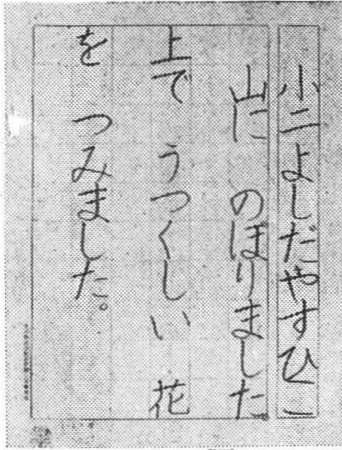 小二よしだやすひこ
山に のぼりました。
上で うつくしい 花
を つみました。